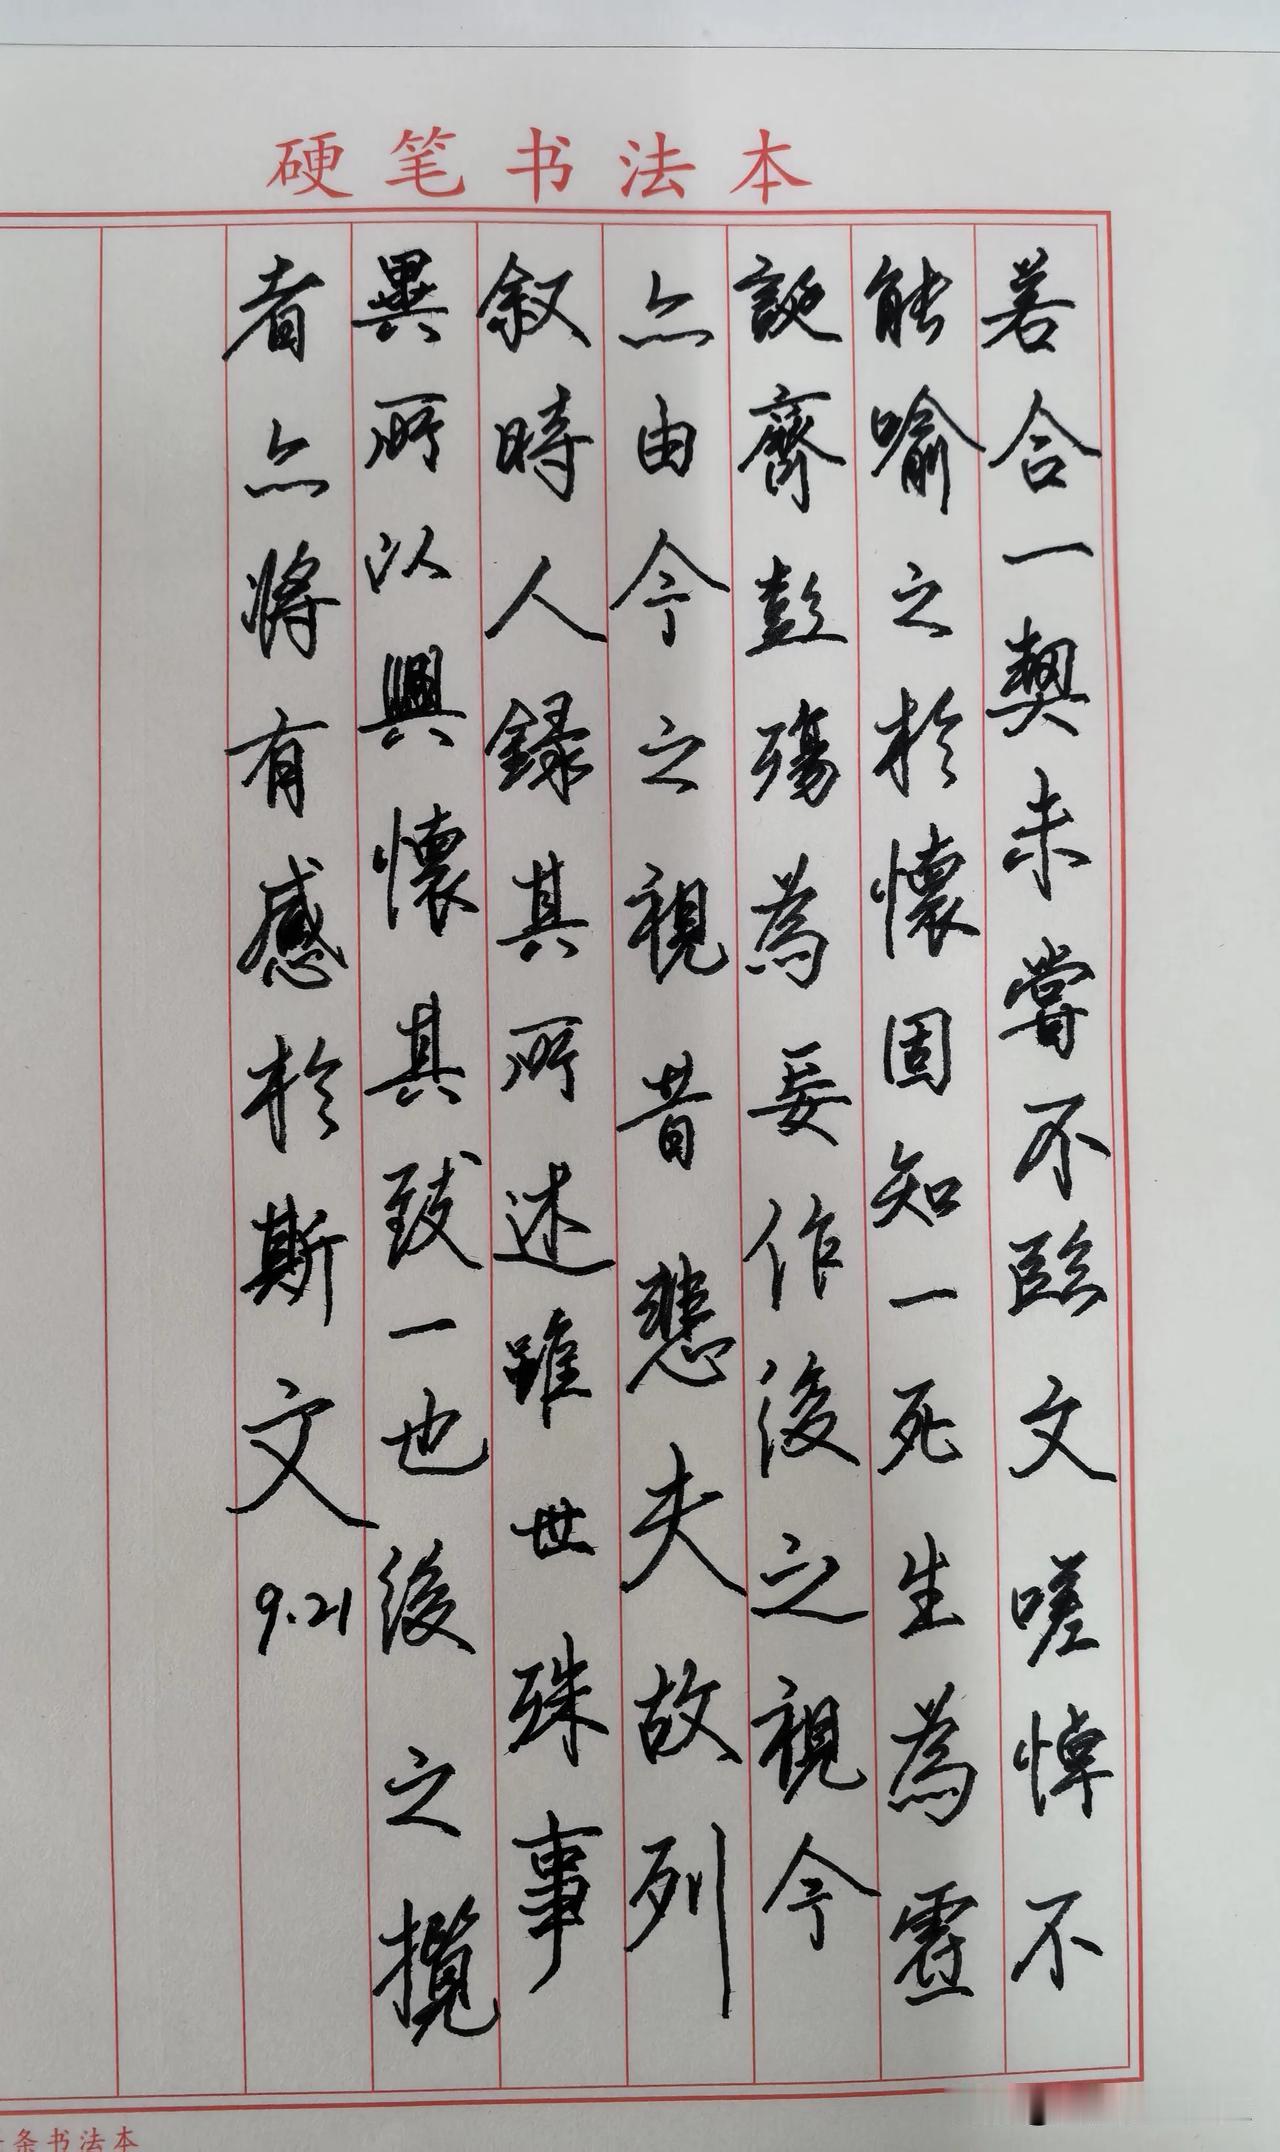 硬笔书法本
若合一契未嘗不臨文嗟悼不
能喻之於懷固知一死生為虛
誕齊彭殤為妄作後之視今
亦由今之視昔悲夫故列
叙時人錄其所述雖世殊事
異所以興懷其致一也後之攬
者亦將有感於斯文 9.21
条书法本